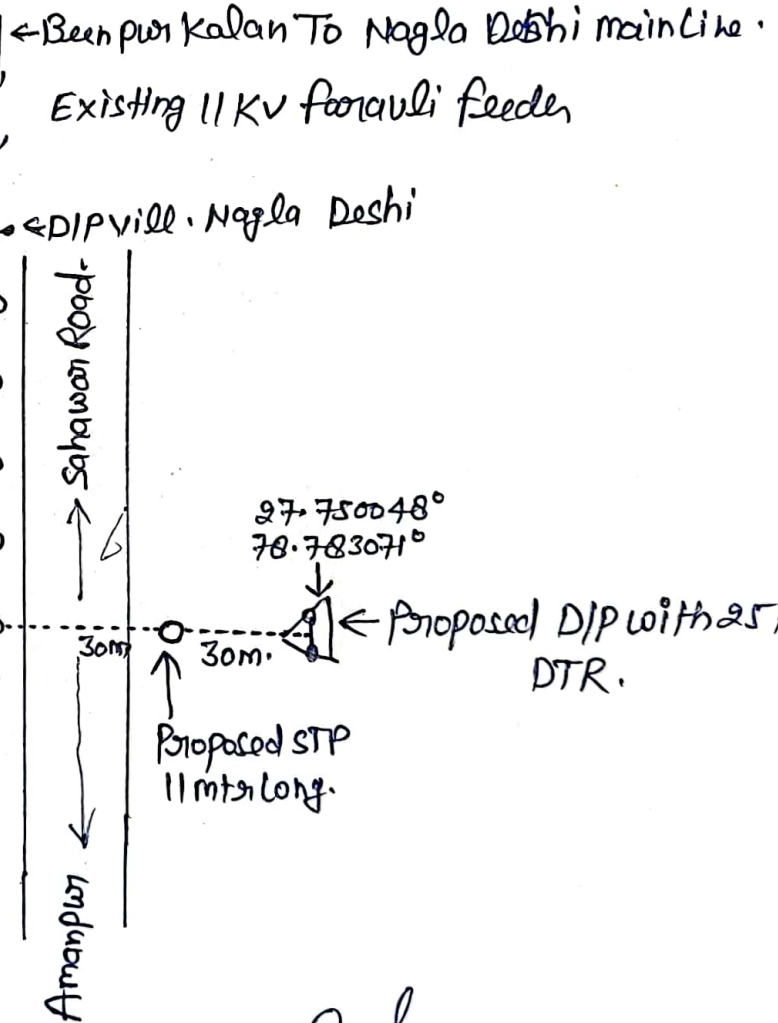 ←Beenpur Kalan To Nagla Deshi main Line.
Existing 11 KV farauli feeder
←D/P Vill. Nagla Deshi
Sahawar Road
27.750048°
78.783071°
←Proposed D/P with 25
DTR.
30m
30m.
Proposed STP
11 mtr long.
Amanpur